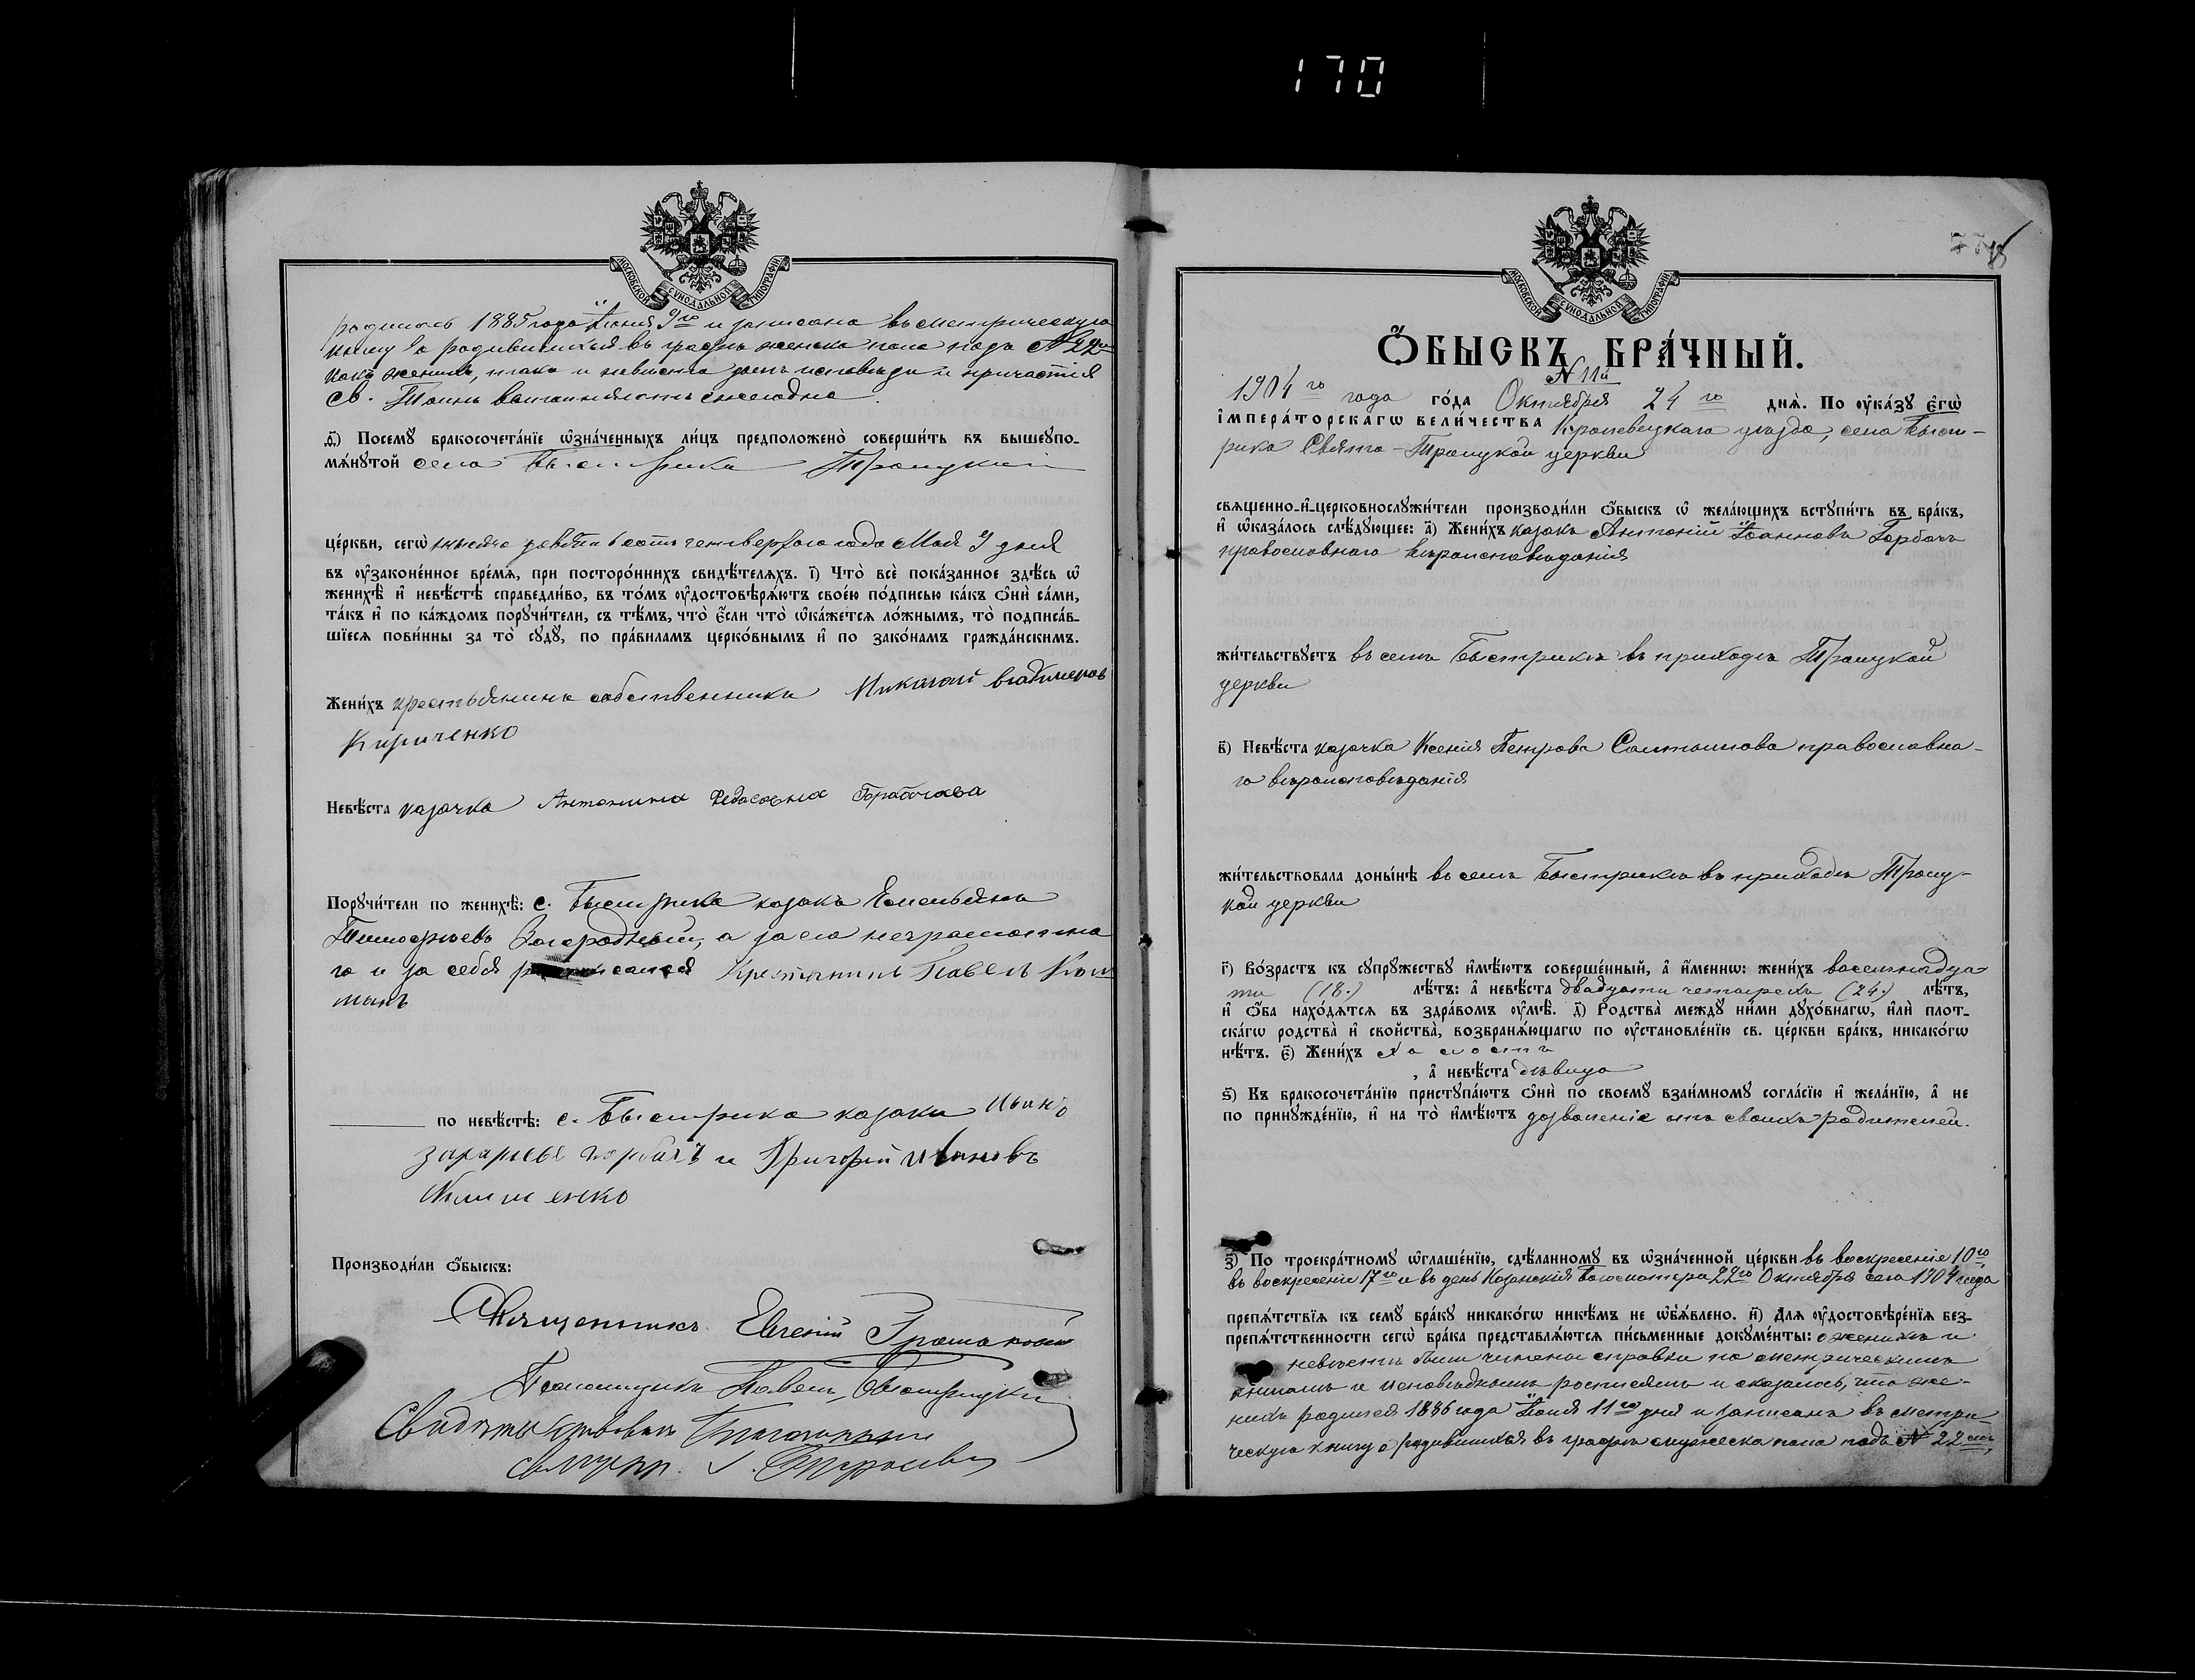 170
МОСКОВСКОЙ СѴНОДАЛЬНОЙ ТИПОГРАФІИ
родилась 1885 года Іюня 9го и записана въ метрическую
книгу о родившихся въ графѣ женска пола подъ № 22
какъ женихъ, такъ и невѣста долгъ исповѣди и причастія
Св. Таинъ ежегодно.
ѳ҃) Посемꙋ бракосочета́нїе ѡ҆зна́ченныхъ ли́цъ предположено̀ соверши́ть въ вышеꙋпо-
мѧ́нꙋтой села Быстрика Троицкой
це́ркви, сегѡ̀ тысяча девятьсотъ четвертого года Мая 9 дня
въ ᲂу҆зако́ненное вре́мѧ, при посторо́ннихъ свидѣ́телѧхъ. і҃) Что̀ всѐ пока́занное здѣ́сь ѡ҆
женихѣ̀ и҆ невѣ́стѣ справедли́во, въ то́мъ ᲂу҆достовѣрѧ́ютъ свое́ю по́дписью ка́къ ѻ҆нѝ са́ми,
та́къ и҆ по ка́ждомъ порꙋчи́тели, съ тѣ́мъ, что̀ є҆́сли что̀ ѡ҆ка́жетсѧ ло́жнымъ, то̀ подписа́в-
шїесѧ пови́нны за то̀ сꙋдꙋ̀, по пра́виламъ церко́внымъ и҆ по зако́намъ гражда́нскимъ.
Жени́хъ крестьянинъ собственникъ Николай владимеров
Кириченко
Невѣ́ста казачка Антонина Горбачова
Порꙋчи́тели по женихѣ̀: с. Быстрика казакъ Емельянъ
Тимофѣевъ Загородный, а за его неграмотна
го и за себя Крестянинъ Павелъ
по невѣ́стѣ: с. Быстрика казаки Иванъ
захарьевъ горбачъ и Григорій Ивановъ
Клименко
Производи́ли ѻ҆́быскъ:
Священникъ Евгеній
Псаломщикъ Павелъ
7748
Ѻ҆́БЫСКЪ БРА́ЧНЫЙ.
№ 11й
1904го года го́да Октября 24го днѧ̀. По ᲂу҆ка́зꙋ є҆гѡ̀
і҆мпера́торскагѡ вели́чества Кролевецкаго уѣзда, села Быст-
рика Свято-Троицкой церкви
свѧщенно-и҆-церковнослꙋжи́тели производи́ли ѻ҆́быскъ ѡ҆ жела́ющихъ встꙋпи́ть въ бра́къ,
и҆ ѡ҆каза́лось слѣ́дꙋющее: а҃) Жени́хъ казакъ Антоній Іоанновъ Горбачъ
православнаго вѣроисповѣданія
жи́тельствꙋетъ въ селѣ Быстрикѣ въ приходѣ Троицкой
церкви
в҃) Невѣ́ста казачка Ксенія Петрова Солтанова православна-
го вѣроисповѣданія
жи́тельствовала доны́нѣ въ селѣ Быстрикѣ въ приходѣ Троиц-
кой церкви
г҃) Во́зрастъ къ сꙋпрꙋ́жествꙋ и҆мѣ́ютъ соверше́нный, а҆ и҆́менно: жени́хъ восемнадца-
ти (18.) лѣ́тъ: а҆ невѣ́ста двадцати четырехъ (24.) лѣ́тъ,
и҆ ѻ҆́ба нахо́дѧтсѧ въ здра́вомъ ᲂу҆мѣ̀. д҃) Родства̀ междꙋ ни́ми дꙋхо́внагѡ, и҆лѝ плот-
ска́гѡ родства̀ и҆ свойства̀, возбранѧ́ющагѡ по ᲂу҆становле́нїю св. це́ркви бра́къ, никако́гѡ
нѣ́тъ. є҃) Жени́хъ холостъ
, а҆ невѣ́ста дѣвица
ѕ҃) Къ бракосочета́нїю пристꙋпа́ютъ ѻ҆нѝ по своемꙋ̀ взаи́мномꙋ согла́сїю и҆ жела́нїю, а҆ не
по принꙋжде́нїю, и҆ на то̀ и҆мѣ́ютъ дозволеніе отъ своихъ родителей.
з҃) По троекра́тномꙋ ѡ҆глаше́нїю, сдѣ́ланномꙋ въ ѡ҆зна́ченной це́ркви въ воскресеніе 10го,
въ воскресеніе 17го и въ день Казанскія Богоматери 22го Октября сего 1904 года
препѧ́тствїѧ къ семꙋ̀ бра́кꙋ никако́гѡ никѣ́мъ не ѡ҆б̾ѧ́влено. и҃) Длѧ ᲂу҆достовѣре́нїѧ без-
препѧ́тственности сегѡ̀ бра́ка представлѧ́ютсѧ пи́сьменные докꙋме́нты: о женихѣ и
невѣстѣ были чинены справки по метрическимъ
книгамъ и исповѣднымъ росписямъ и оказалось, что же-
нихъ родился 1886 года Іюня 11го дня и записанъ въ метри-
ческую книгу о родившихся въ графѣ мужеска пола подъ № 22мъ,
МОСКОВСКОЙ СѴНОДАЛЬНОЙ ТИПОГРАФІИ